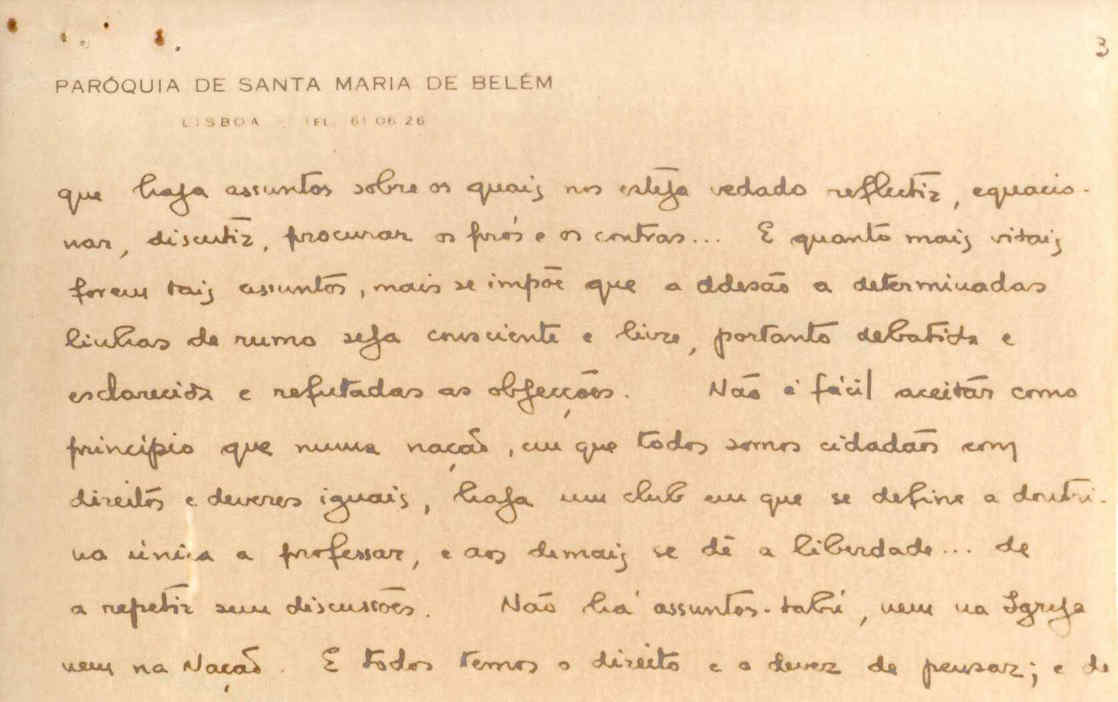 3
PARÓQUIA DE SANTA MARIA DE BELÉM
LISBOA TEL. 61 06 26
que haja assuntos sobre os quais nos esteja vedado reflectir, equacio-
nar, discutir, procurar os prós e os contras... E quanto mais vitais
forem tais assuntos, mais se impõe que a adesão a determinadas
linhas de rumo seja consciente e livre, portanto debatida e
esclarecida e refutadas as objecções. Não é fácil aceitar como
princípio que numa nação, em que todos somos cidadãos com
direitos e deveres iguais, haja um club em que se define a doutri-
na única a professar, e aos demais se dê a liberdade... de
a repetir sem discussões. Não há assuntos-tabú, nem na Igreja
nem na Nação. E todos temos o direito e o dever de pensar; e de